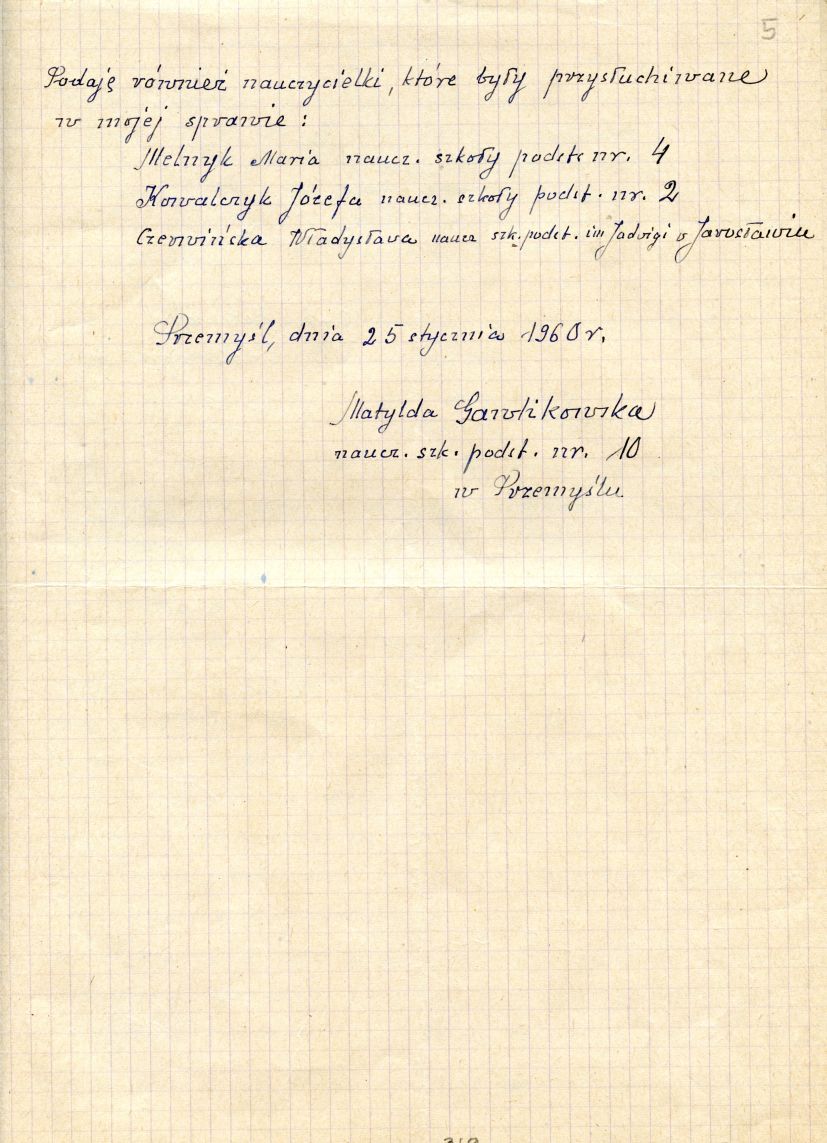 5
Podaję również nauczycielki, które były przysłuchiwane
w mojej sprawie :
Melnyk Maria naucz. szkoły podst. nr. 4
Kowalczyk Józefa naucz. szkoły podst. nr. 2
Czerwińska Władysława naucz szk. podst. im Jadwigi w Jarosławiu
Przemyśl, dnia 25 stycznia 1960 r.
Matylda Gawlikowska
naucz. szk. podst. nr. 10
w Przemyślu